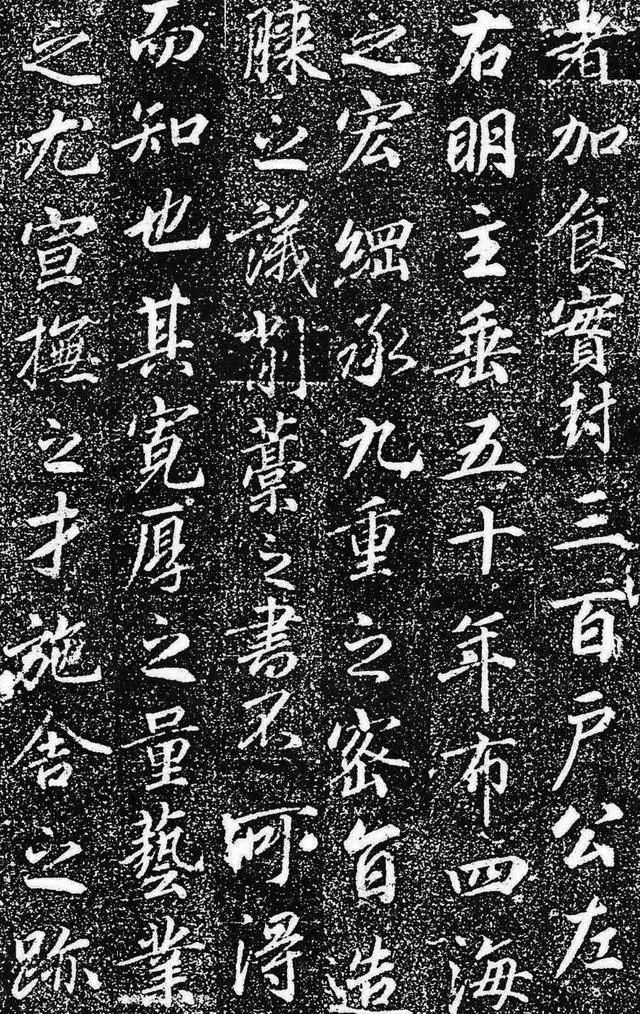 者加食實封三百戶公左
右明主垂五十年布四海
之宏綱承九重之密旨造
膝之議削藁之書不可得
而知也其寬厚之量藝業
之尤宣撫之才施舍之跡